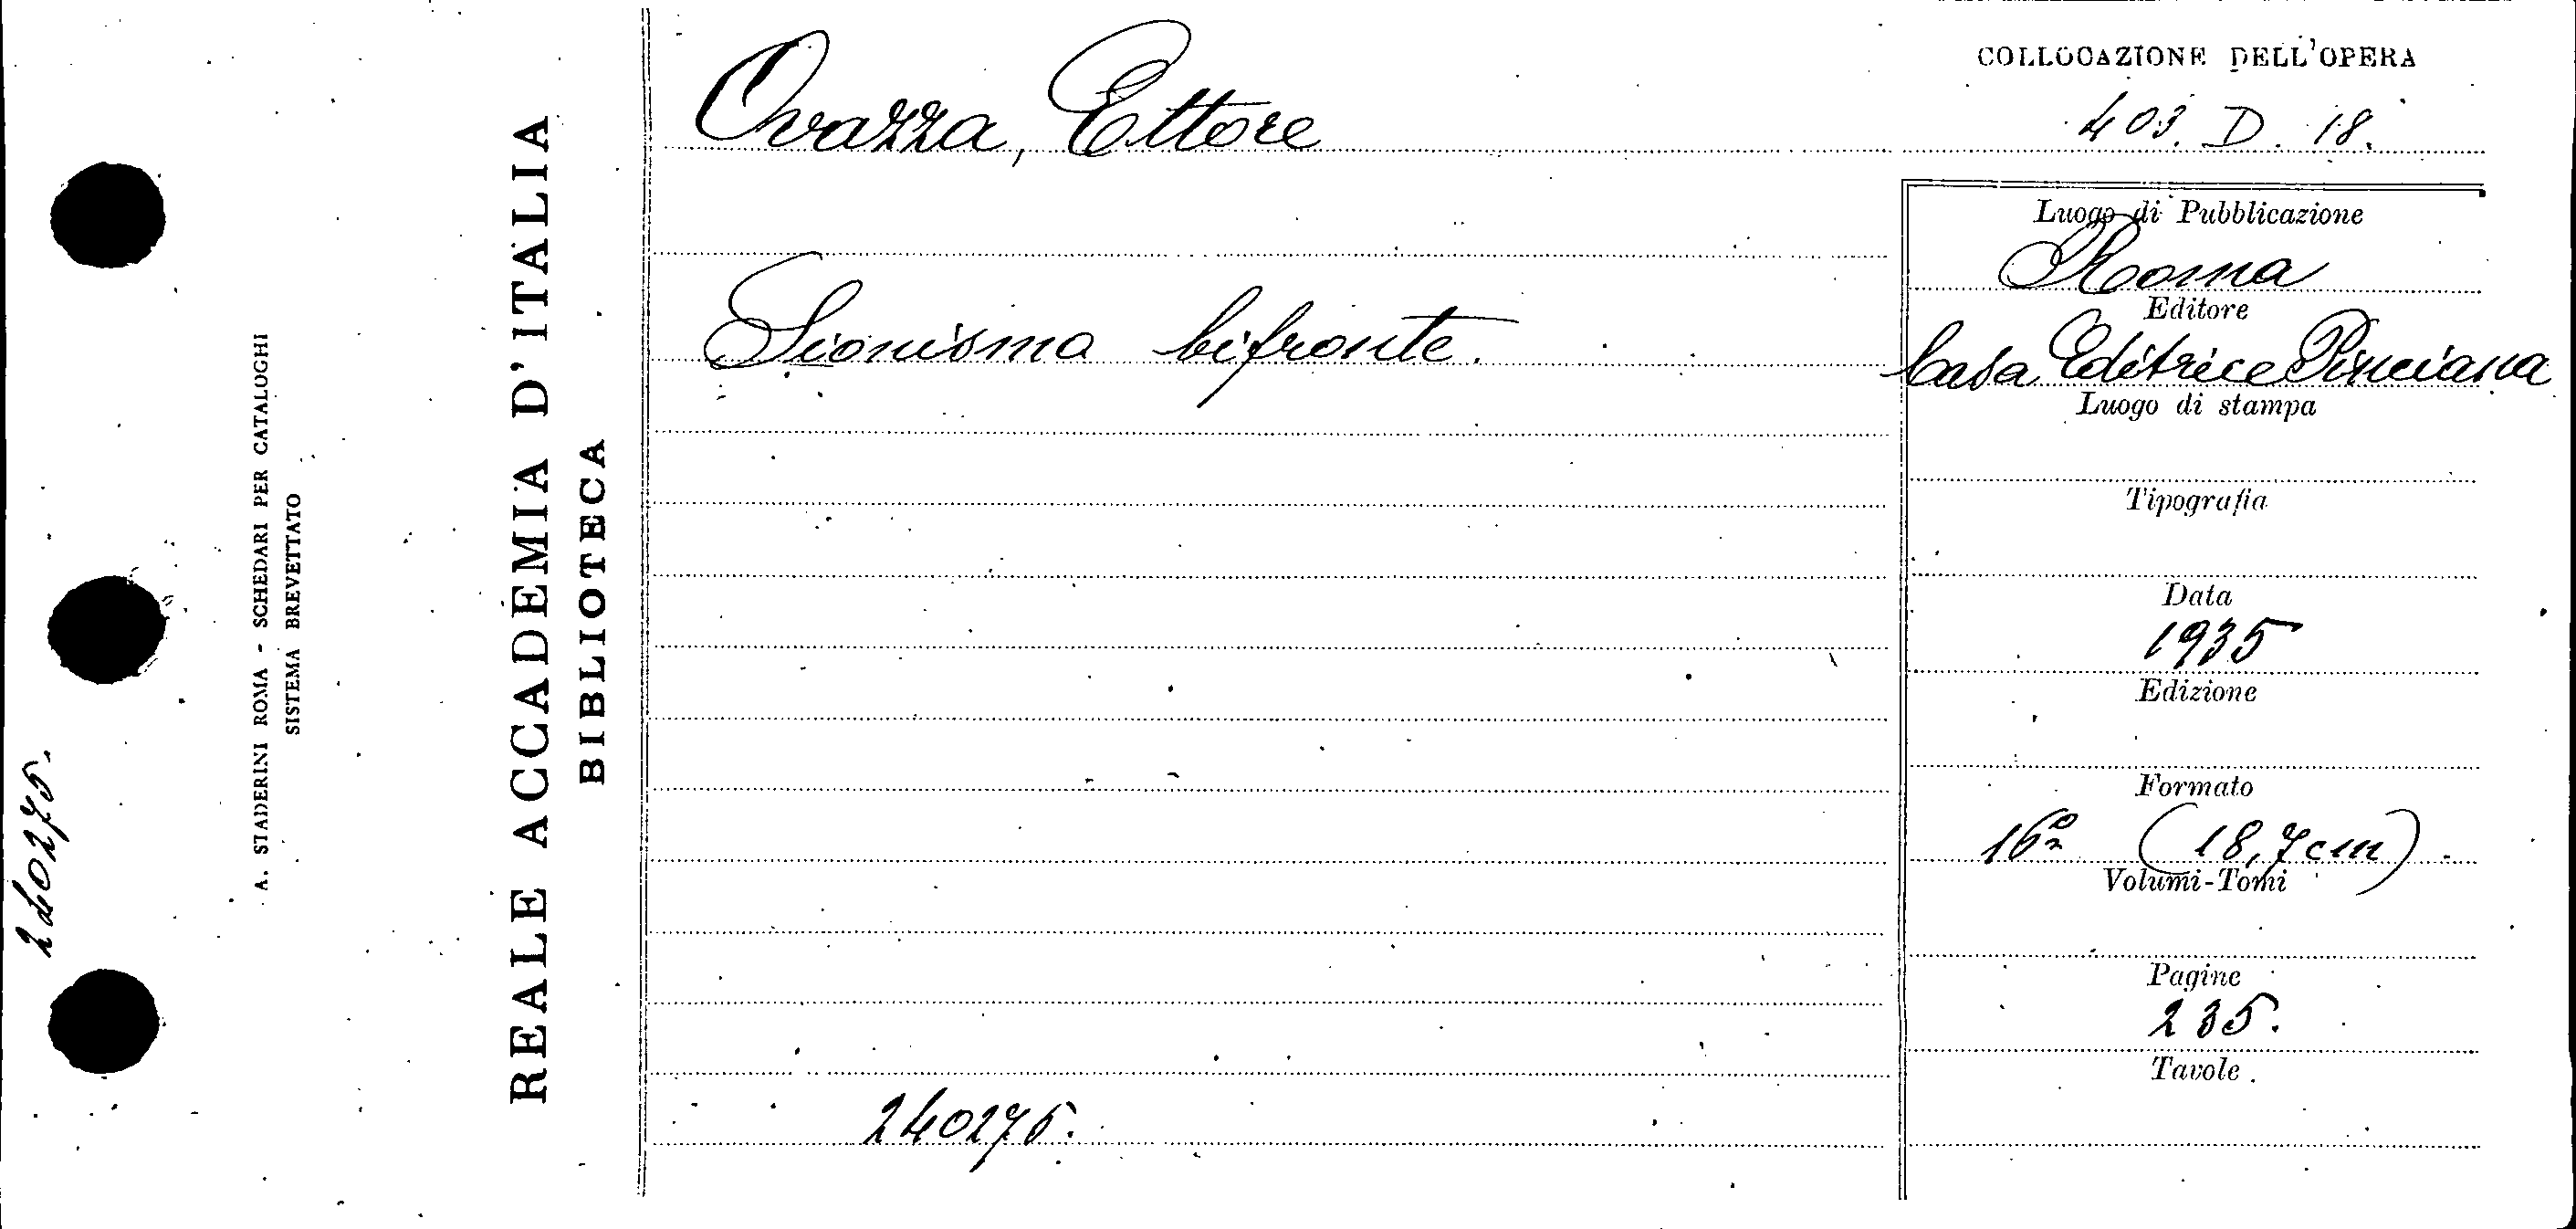 240275.
A. STADERINI ROMA - SCHEDARI PER CATALOGHI
SISTEMA BREVETTATO
REALE ACCADEMIA D'ITALIA
BIBLIOTECA
Ovazza, Ettore
Sionismo bifronte.
240275.
COLLOCAZIONE DELL'OPERA
403. D. 18.
Luogo di Pubblicazione
Roma
Editore
Casa Editrice Pinciana
Luogo di stampa
Tipografia
Data
1935
Edizione
Formato
16º (18,7 cm)
Volumi-Tomi
Pagine
235.
Tavole